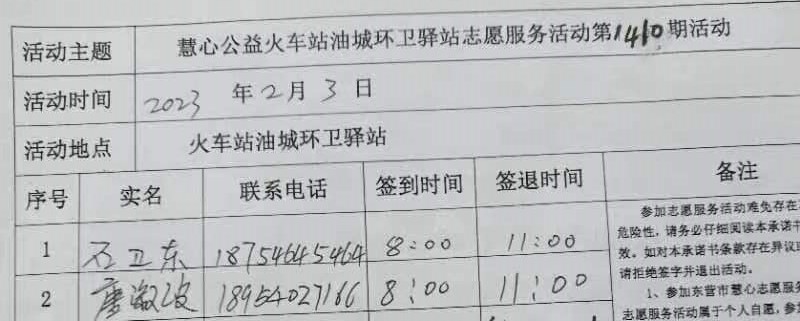 活动主题 慧心公益火车站油城环卫驿站志愿服务活动第1410期活动
活动时间 2023 年 2 月 3 日
活动地点 火车站油城环卫驿站
序号 实名 联系电话 签到时间 签退时间 备注
1 石卫东 18754645464 8:00 11:00
2 唐激波 18954027166 8:00 11:00
参加志愿服务活动难免存在
危险性，请务必仔细阅读本承诺书
效。如对本承诺书条款存在异议
请拒绝签字并退出活动。
1、参加东营市慧心志愿服务
志愿服务活动属于个人自愿，参